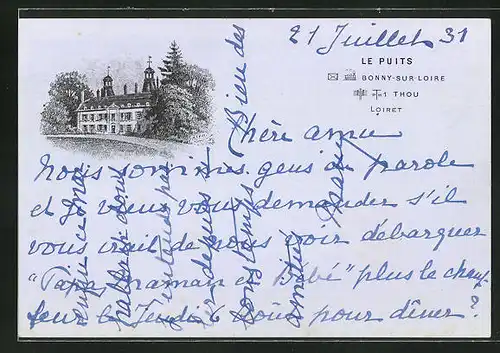 21 Juillet 31
LE PUITS
BONNY-SUR-LOIRE
1 THOU
LOIRET
Chère amie
Nous sommes gens de parole
et je viens vous demander s'il
vous irait de nous voir débarquer
"Papa maman et Bébé" plus le chauf
feur le Jeudi 6 Août pour dîner?
vous
depuis
longtemps. Bien des
amitiés